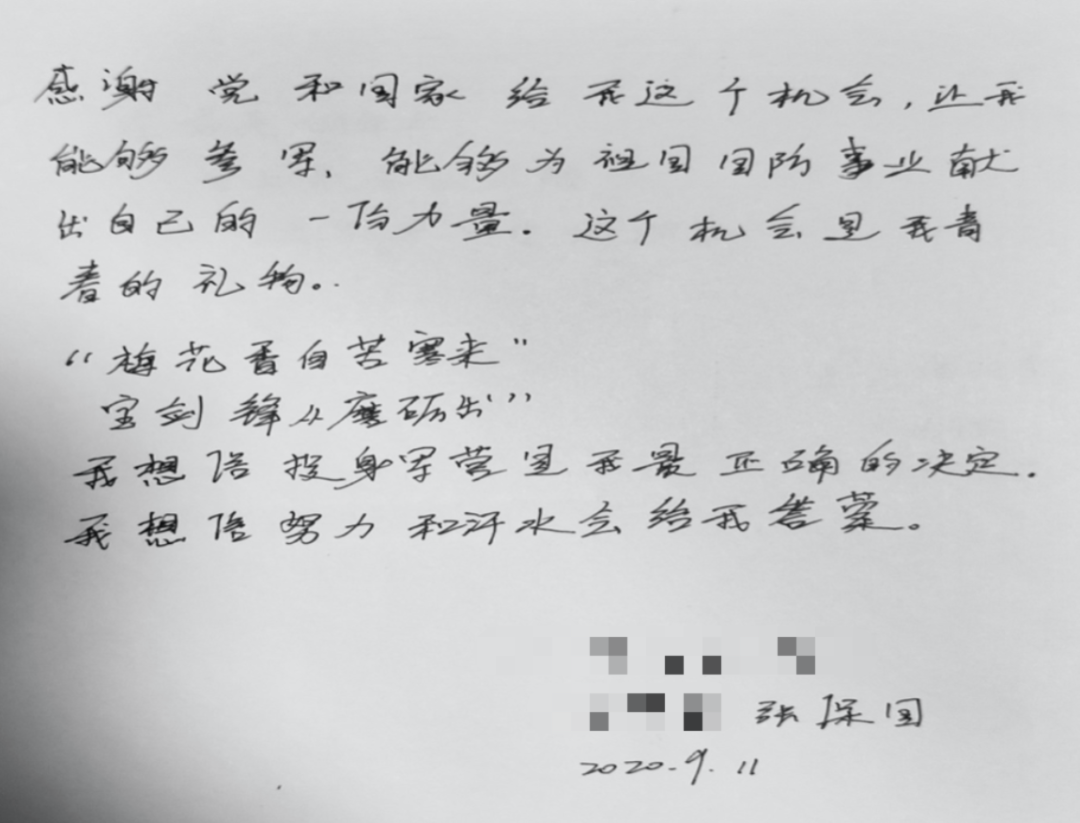 感谢党和国家给我这个机会,让我
能够参军,能够为祖国国防事业献
出自己的一份力量.这个机会是我青
春的礼物。
“梅花香自苦寒来”
宝剑锋从磨砺出”
我想信投身军营是我最正确的决定.
我想信努力和汗水会给我答案。
张保国
2020.9.11